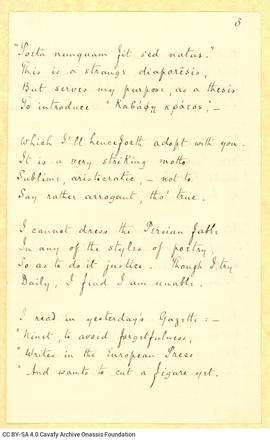 3
"Poeta nunquam fit sed natus."
This is a strange diaporesis,
But serves my purpose, as a thesis
To introduce "Καβάφη κράτος",—
Which I'll henceforth adopt with you.
It is a very striking motto
Sublime, aristocratic, — not to
Say rather arrogant, tho' true.
I cannot dress the Persian fable
In any of the styles of poetry,
So as to do it justice. Though I, try
Daily, I find I am unable.
I read in yesterday's Gazette: —
to avoid forgetfulness,
"Writes in the European Press
"And wants to cut a figure yet.
CC BY-SA 4.0 Cavafy Archive Onassis Foundation